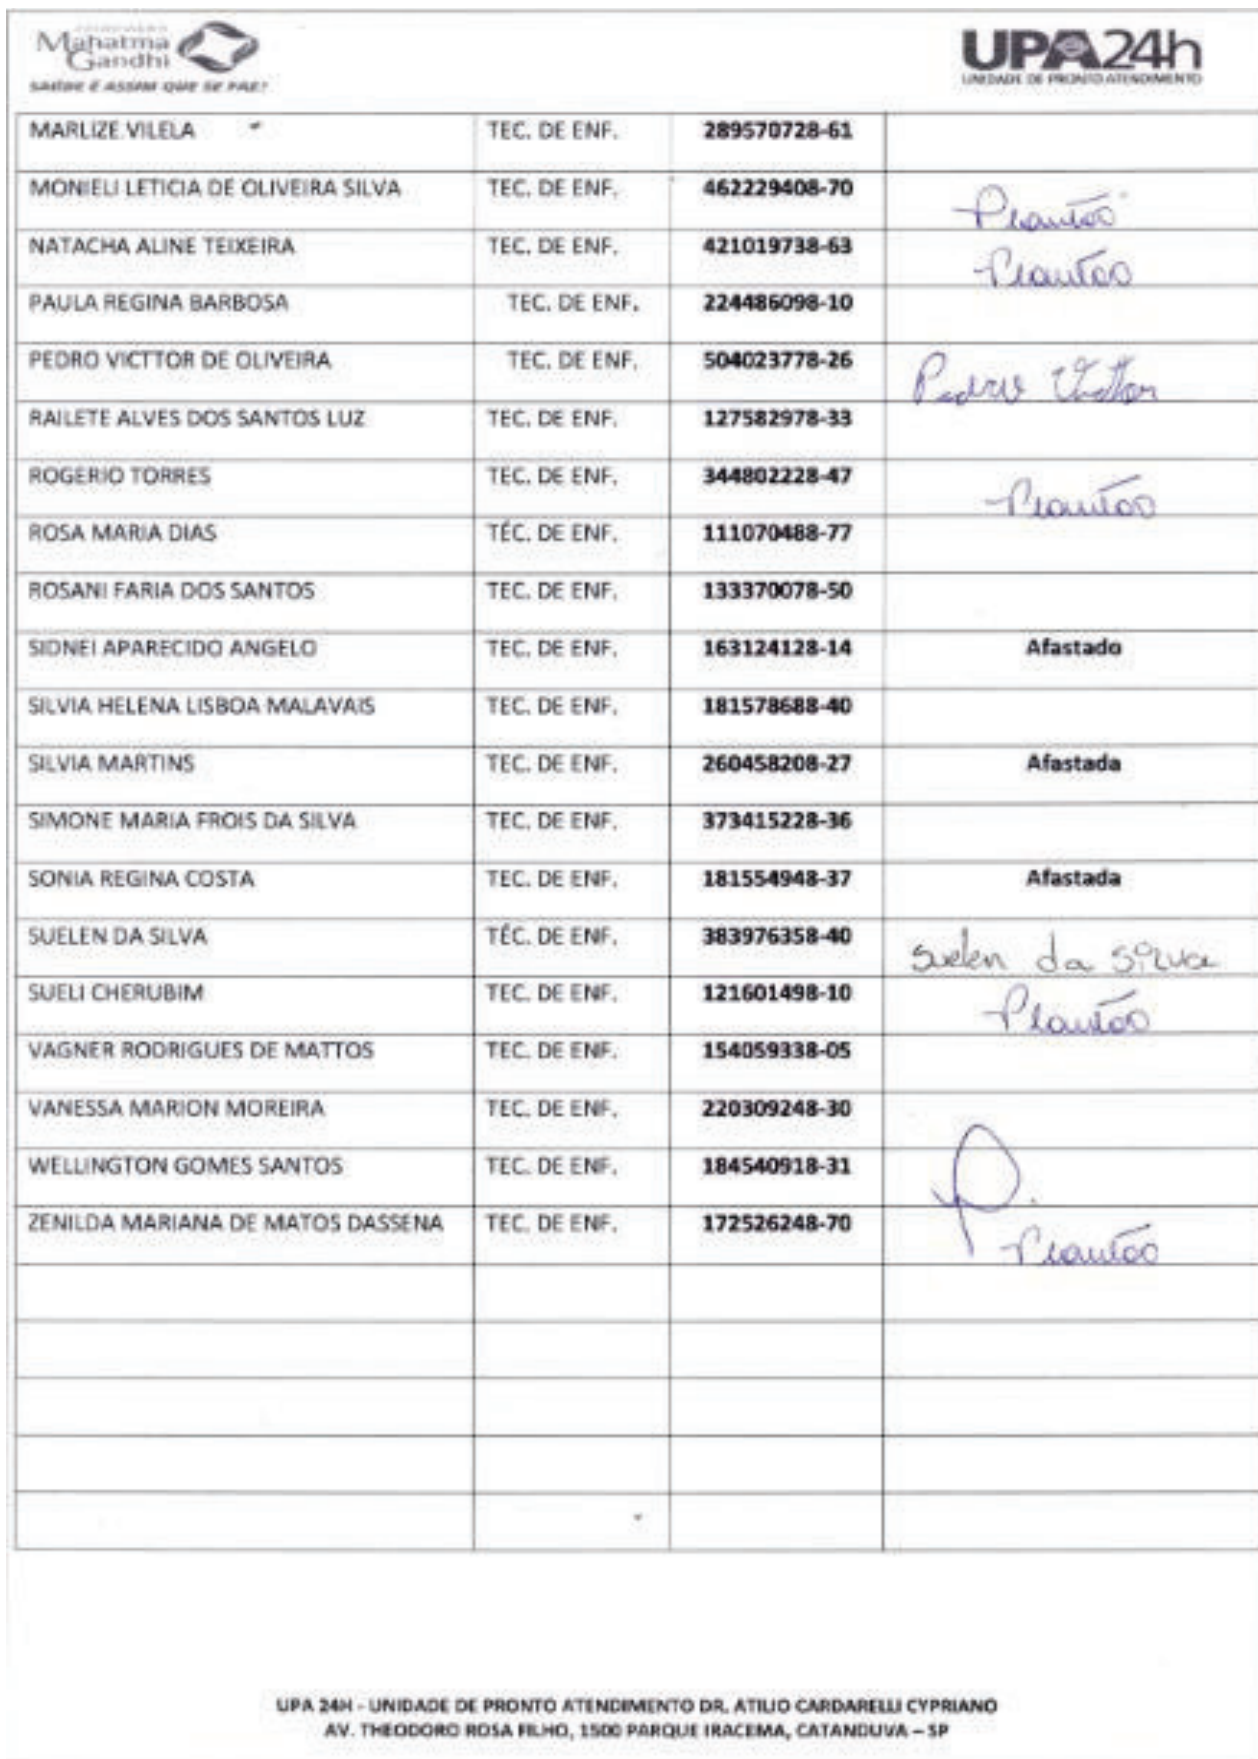 Mahatma
Gandhi
SAÚDE É ASSIM QUE SE FAZ!
UPA 24h
UNIDADE DE PRONTO ATENDIMENTO
MARLIZE VILELA TEC. DE ENF. 289570728-61
MONIELI LETICIA DE OLIVEIRA SILVA TEC. DE ENF. 462229408-70 Plantão
NATACHA ALINE TEIXEIRA TEC. DE ENF. 421019738-63 Plantão
PAULA REGINA BARBOSA TEC. DE ENF. 224486098-10
PEDRO VICTTOR DE OLIVEIRA TEC. DE ENF. 504023778-26 Pedro Victtor
RAILETE ALVES DOS SANTOS LUZ TEC. DE ENF. 127582978-33
ROGERIO TORRES TEC. DE ENF. 344802228-47 Plantão
ROSA MARIA DIAS TÉC. DE ENF. 111070488-77
ROSANI FARIA DOS SANTOS TEC. DE ENF. 133370078-50
SIDNEI APARECIDO ANGELO TEC. DE ENF. 163124128-14 Afastado
SILVIA HELENA LISBOA MALAVAIS TEC. DE ENF. 181578688-40
SILVIA MARTINS TEC. DE ENF. 260458208-27 Afastada
SIMONE MARIA FROIS DA SILVA TEC. DE ENF. 373415228-36
SONIA REGINA COSTA TEC. DE ENF. 181554948-37 Afastada
SUELEN DA SILVA TÉC. DE ENF. 383976358-40 Suelen da Silva
SUELI CHERUBIM TEC. DE ENF. 121601498-10 Plantão
VAGNER RODRIGUES DE MATTOS TEC. DE ENF. 154059338-05
VANESSA MARION MOREIRA TEC. DE ENF. 220309248-30
WELLINGTON GOMES SANTOS TEC. DE ENF. 184540918-31
ZENILDA MARIANA DE MATOS DASSENA TEC. DE ENF. 172526248-70 Plantão
UPA 24H - UNIDADE DE PRONTO ATENDIMENTO DR. ATILIO CARDARELLI CYPRIANO
AV. THEODORO ROSA FILHO, 1500 PARQUE IRACEMA, CATANDUVA – SP